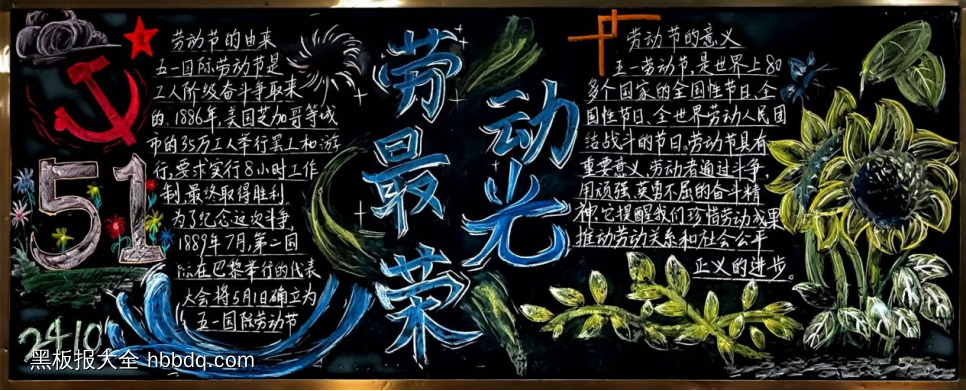 劳动节的由来
五一国际劳动节是
工人阶级奋斗争取来
的。1886年,美国芝加哥等城
市的35万工人举行罢工和游
行,要求实行8小时工作
制,最终取得胜利。
为了纪念这次斗争,
1889年7月,第二国
际在巴黎举行的代表
大会将5月1日确立为
五一国际劳动节
51
2410
劳动
最光
荣
劳动节的意义
五一劳动节,是世界上80
多个国家的全国性节日。全
国性节日、全世界劳动人民团
结战斗的节日。劳动节具有
重要意义,劳动者通过斗争,
用顽强、英勇不屈的奋斗精
神,它提醒我们珍惜劳动成果
推动劳动关系和社会公平
正义的进步。
黑板报大全 hbbdq.com